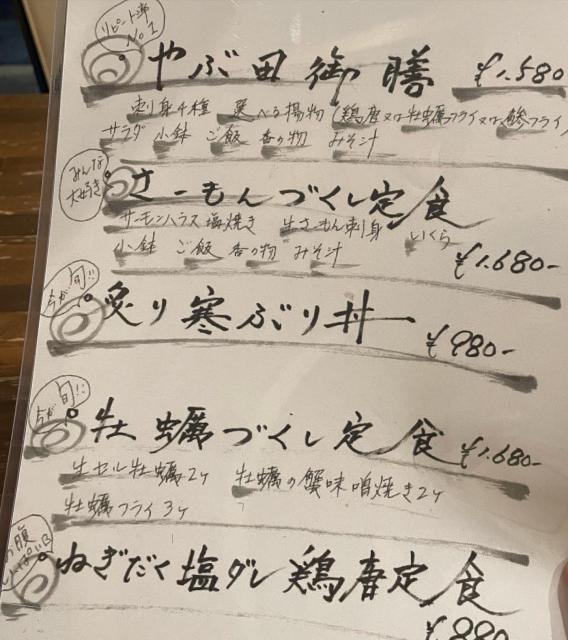 リピート率
No.1
やぶ田御膳 ¥1.580
刺身4種 選べる揚物(鶏唐又は牡蠣フライ又は鯵フライ)
サラダ 小鉢 ご飯 香の物 みそ汁
みんな
大好き
さーもんづくし定食
サーモンハラス塩焼き 生さーもん刺身 いくら
小鉢 ご飯 香の物 みそ汁
¥1.680-
今が旬!!
炙り寒ぶり丼 ¥980-
今が旬!!
牡蠣づくし定食 ¥1.680-
生セル牡蠣2ケ 牡蠣の蟹味噌焼き2ケ
牡蠣フライ3ケ
腹
ねぎだく塩ダレ鶏唐定食